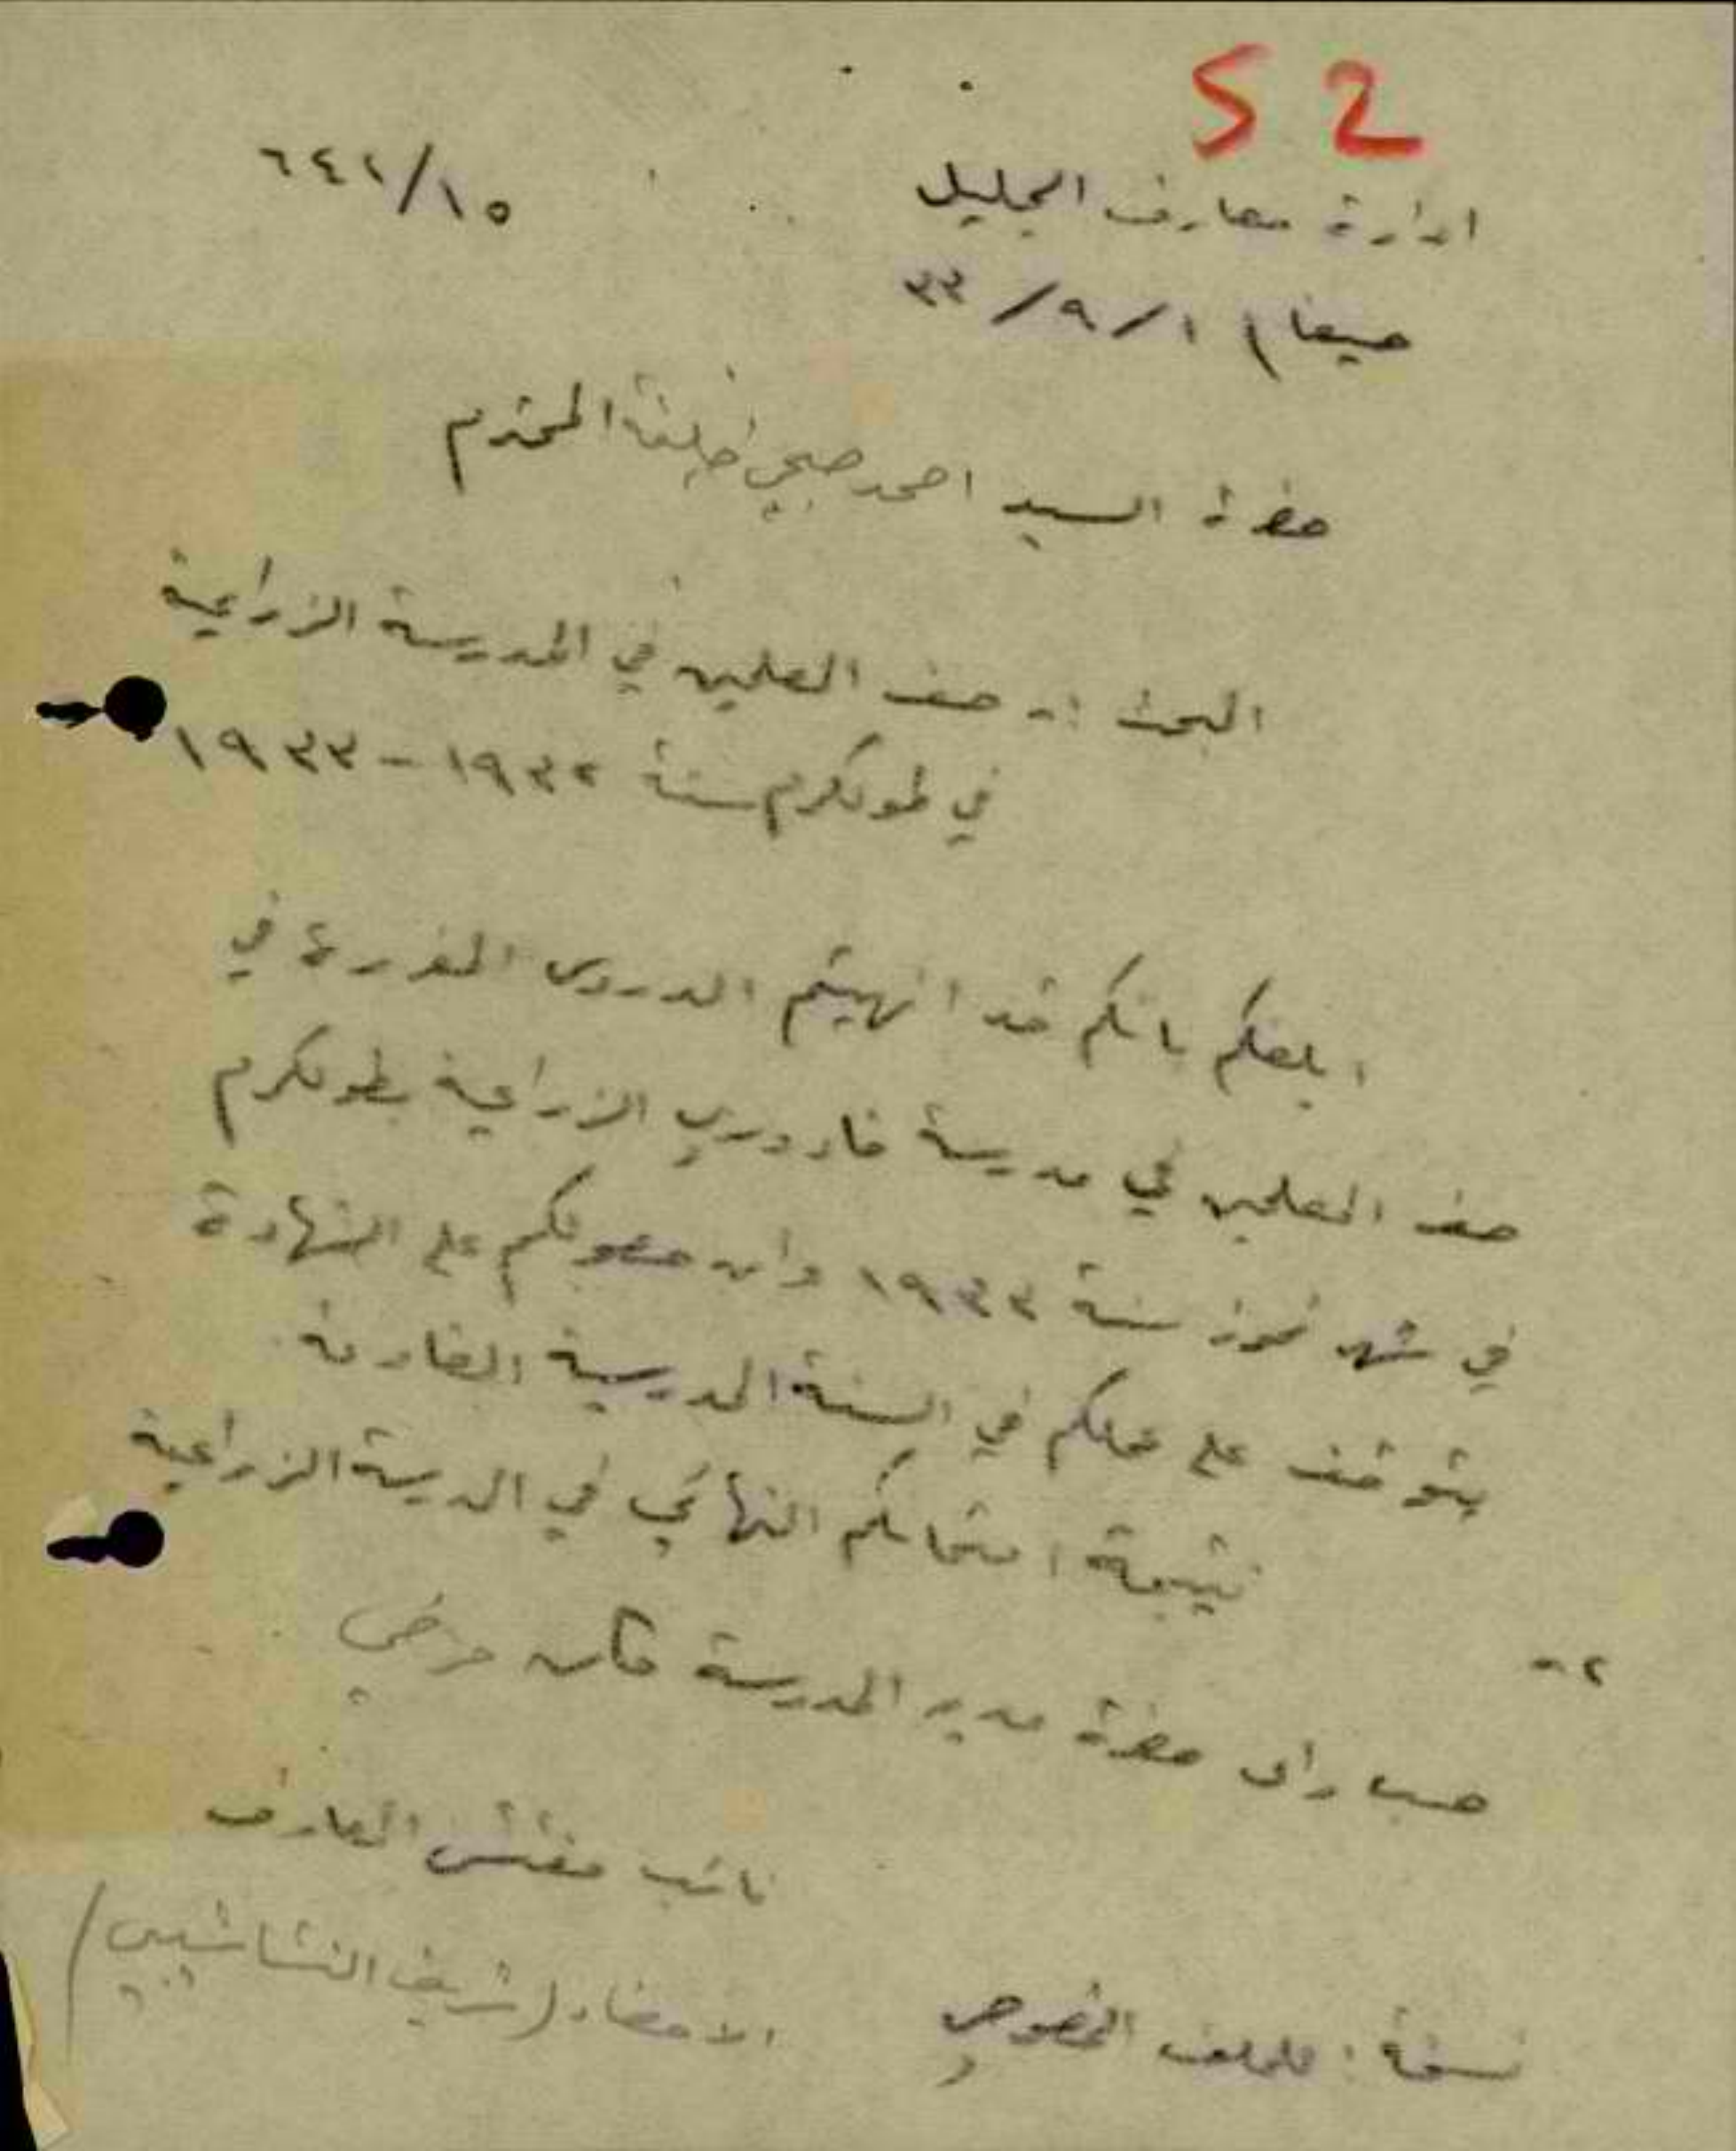 52
ادارة معارف الجليل
٦٤١/١٥
حيفا ١/٩/٣٣
حضرة السيد احمد صبحي خليفة المحترم
البحث :- صف المعلمين في المدرسة الزراعية
في طولكرم سنة ١٩٣٢-١٩٣٣
ابلغكم بانكم قد انهيتم الدروس المقررة في
صف المعلمين في مدرسة خادوري الزراعية بطولكرم
في شهر تموز سنة ١٩٣٣ وان حصولكم على الشهادة
يتوقف على عملكم في السنة المدرسية القادمة
نتيجة امتحانكم النهائي في المدرسة الزراعية
٢-
حسب راى حضرة مدير المدرسة كان مرضي
نائب مفتش المعارف
الامضاء (شريف النشاشيبي)
نسخة : للملف الخصوصي